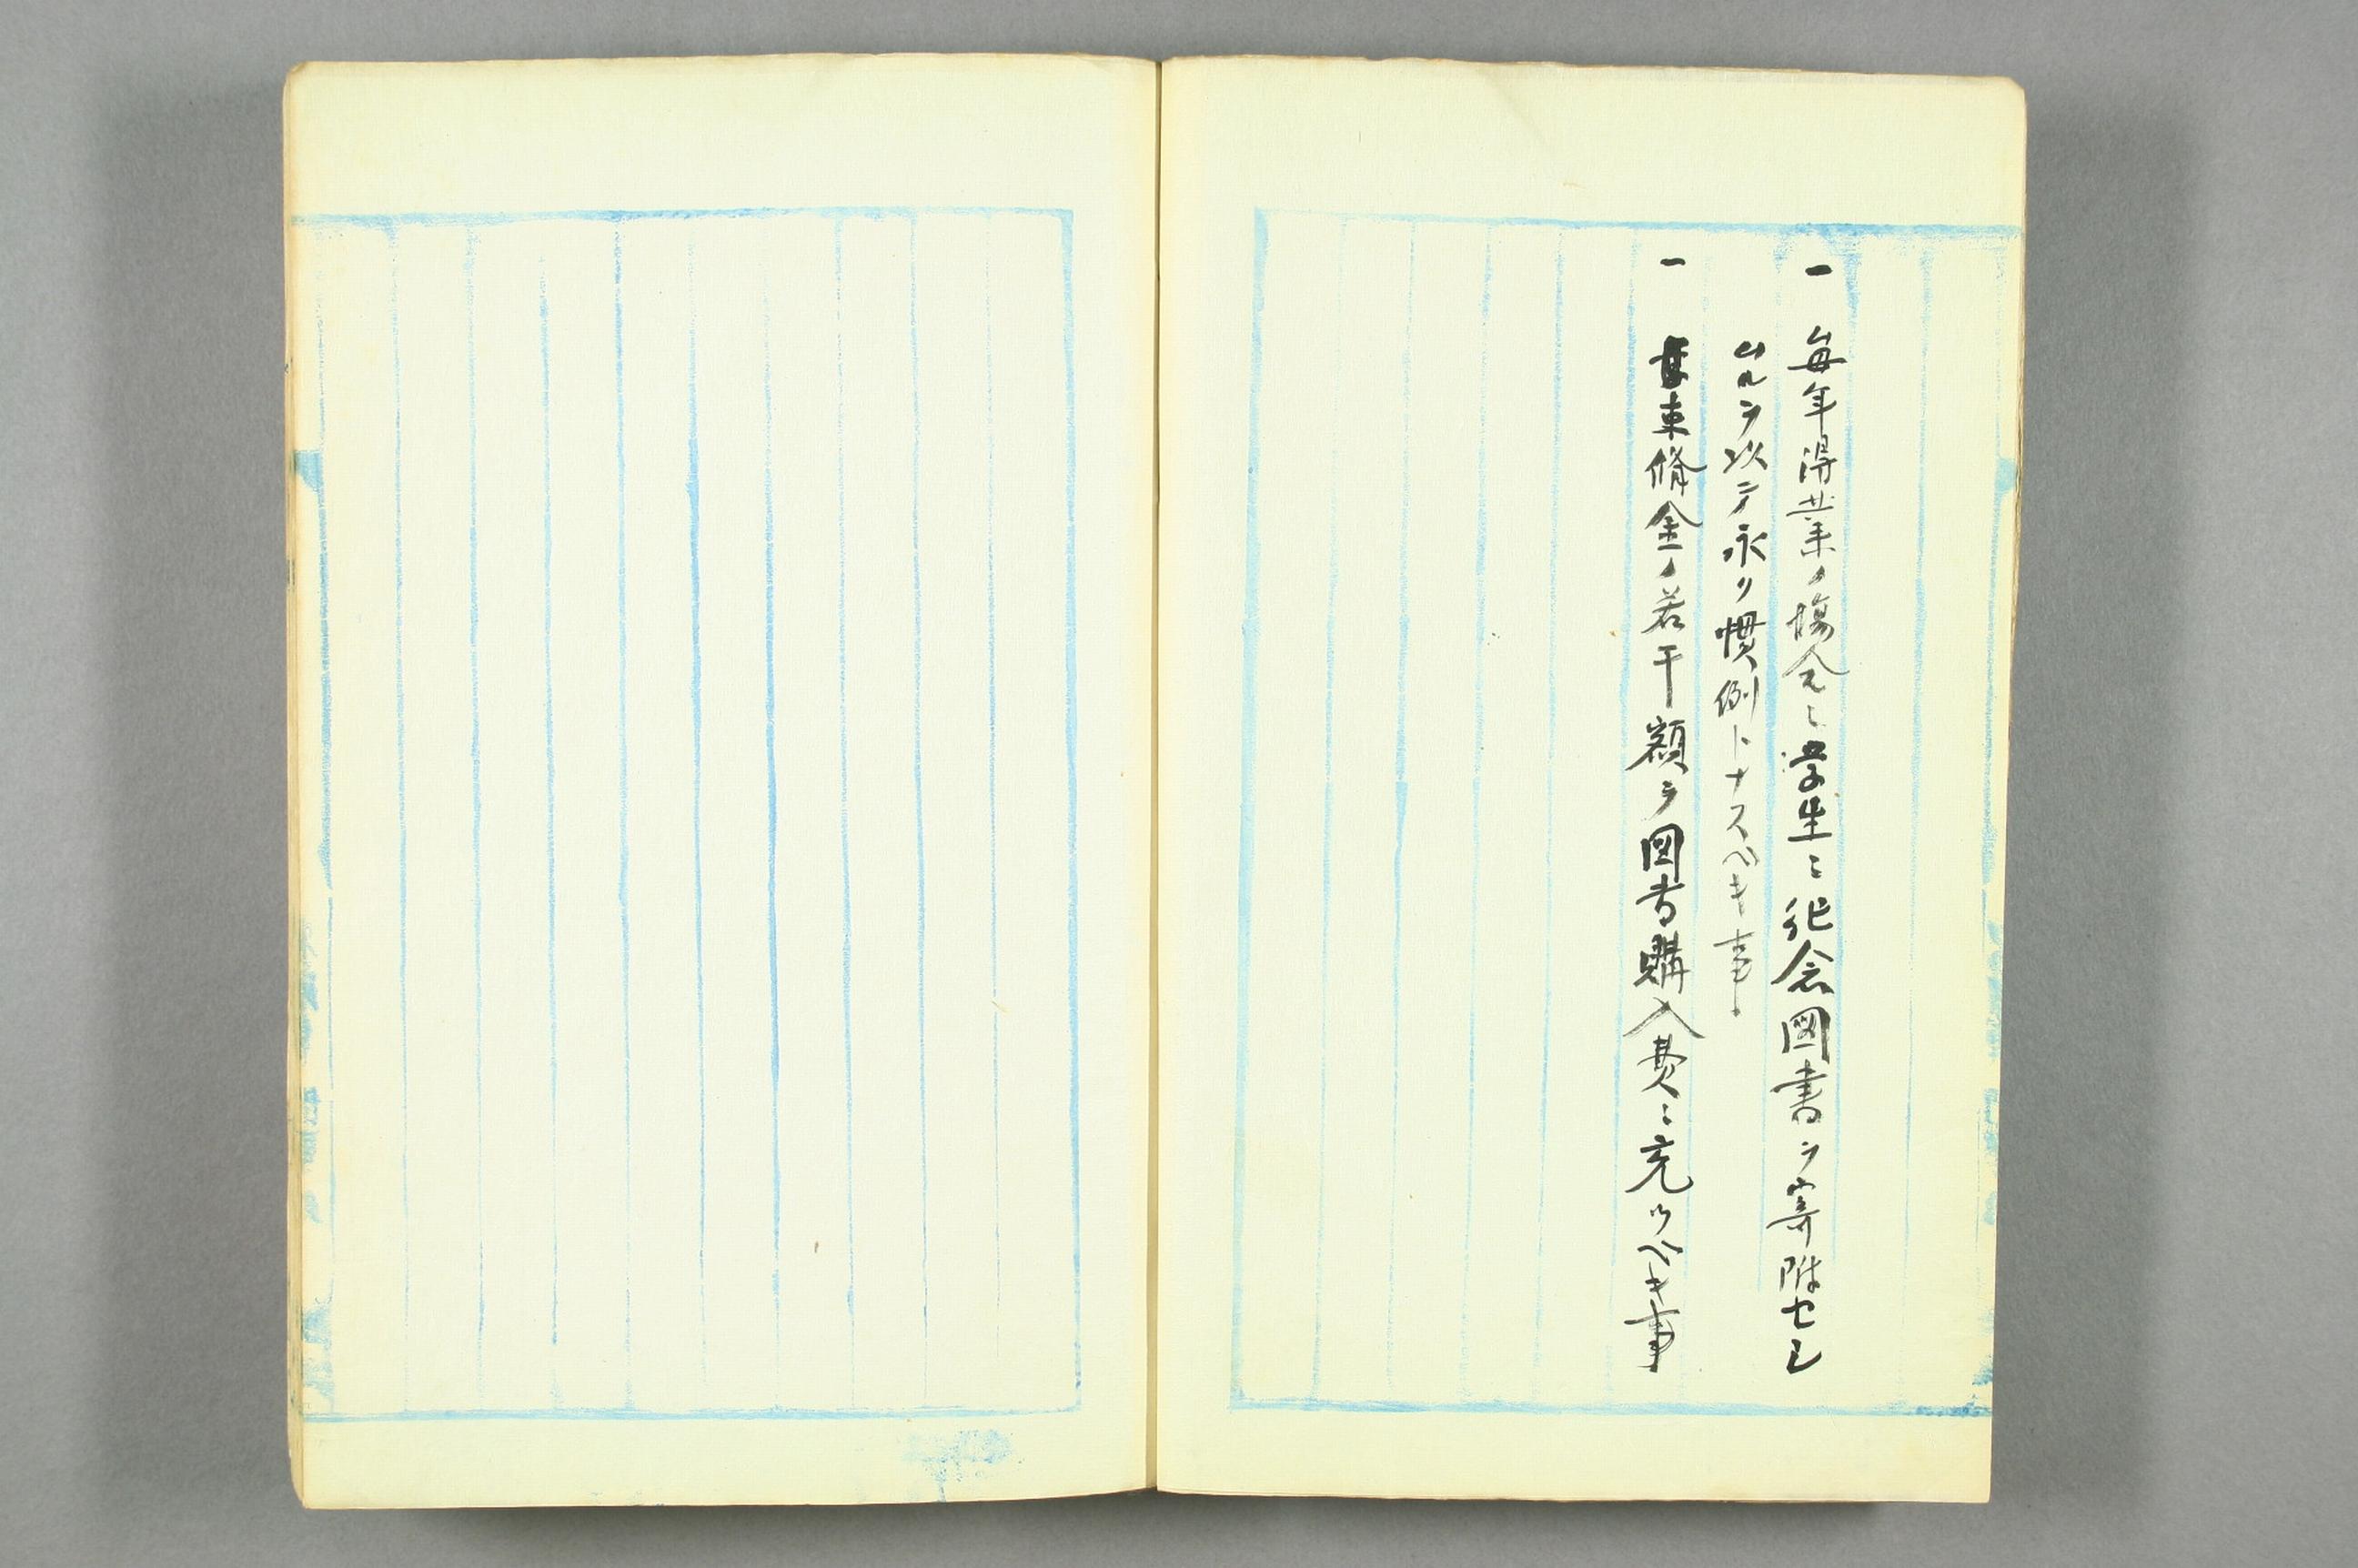 一 毎年得業ノ場合ニ学生ニ紀念図書ヲ寄附セシ
ムルヲ以テ永ク慣例トナスベキ事
一 束脩金ノ若干額ヲ図書購入費ニ充ツベキ事